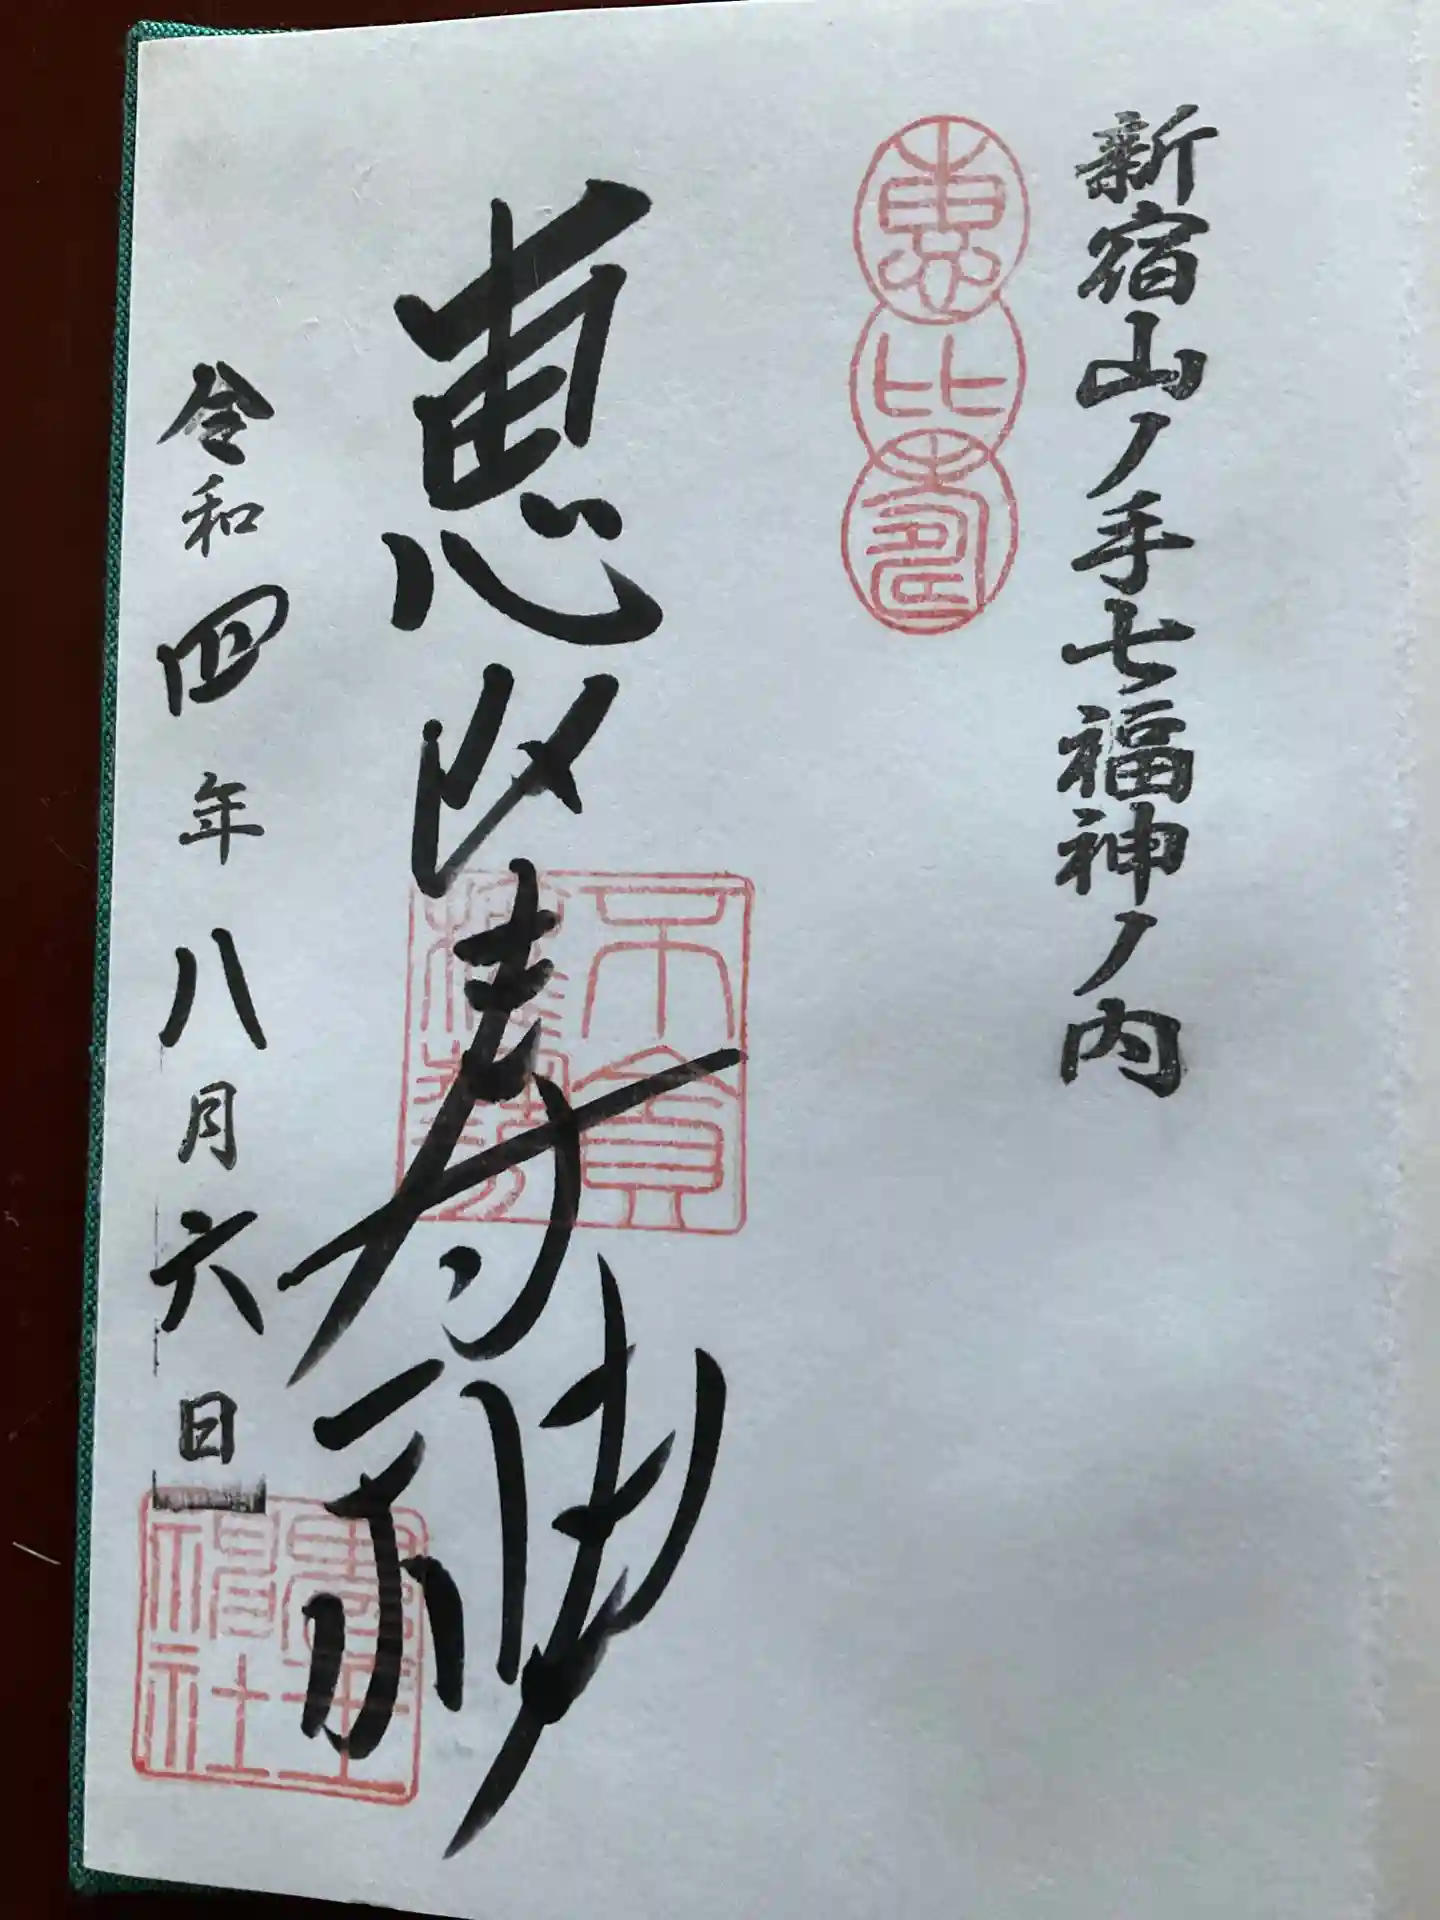 新宿山ノ手七福神ノ内
恵比寿
恵比寿神
不貪
令和四年八月六日
稲荷鬼王神社